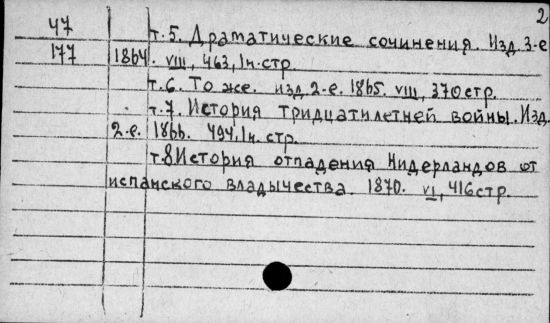 2
47 т.5. Драматические сочинения. Изд. 3-е
177 1864. VIII, 463, 1н.стр.
т.6. То же. изд. 2-е. 1865. VIII, 370 стр.
т.7. История тридцатилетней войны. Изд.
2-е. 1866. 494, 1н. стр.
т.8 История отпадения Нидерландов от
испанского владычества. 1870. VI, 416 стр.